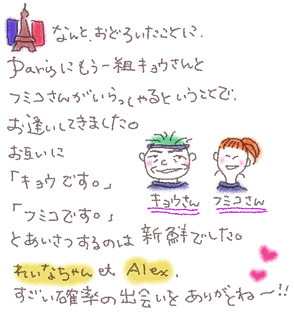 なんと、おどろいたことに、
Parisにもう一組キョウさんと
フミコさんがいらっしゃるということで、
お逢いしてきました。
お互いに
「キョウです。」
「フミコです。」
キョウさん フミコさん
とあいさつするのは新鮮でした。
れいなちゃん et Alex、
すごい確率の出会いをありがとね〜!!